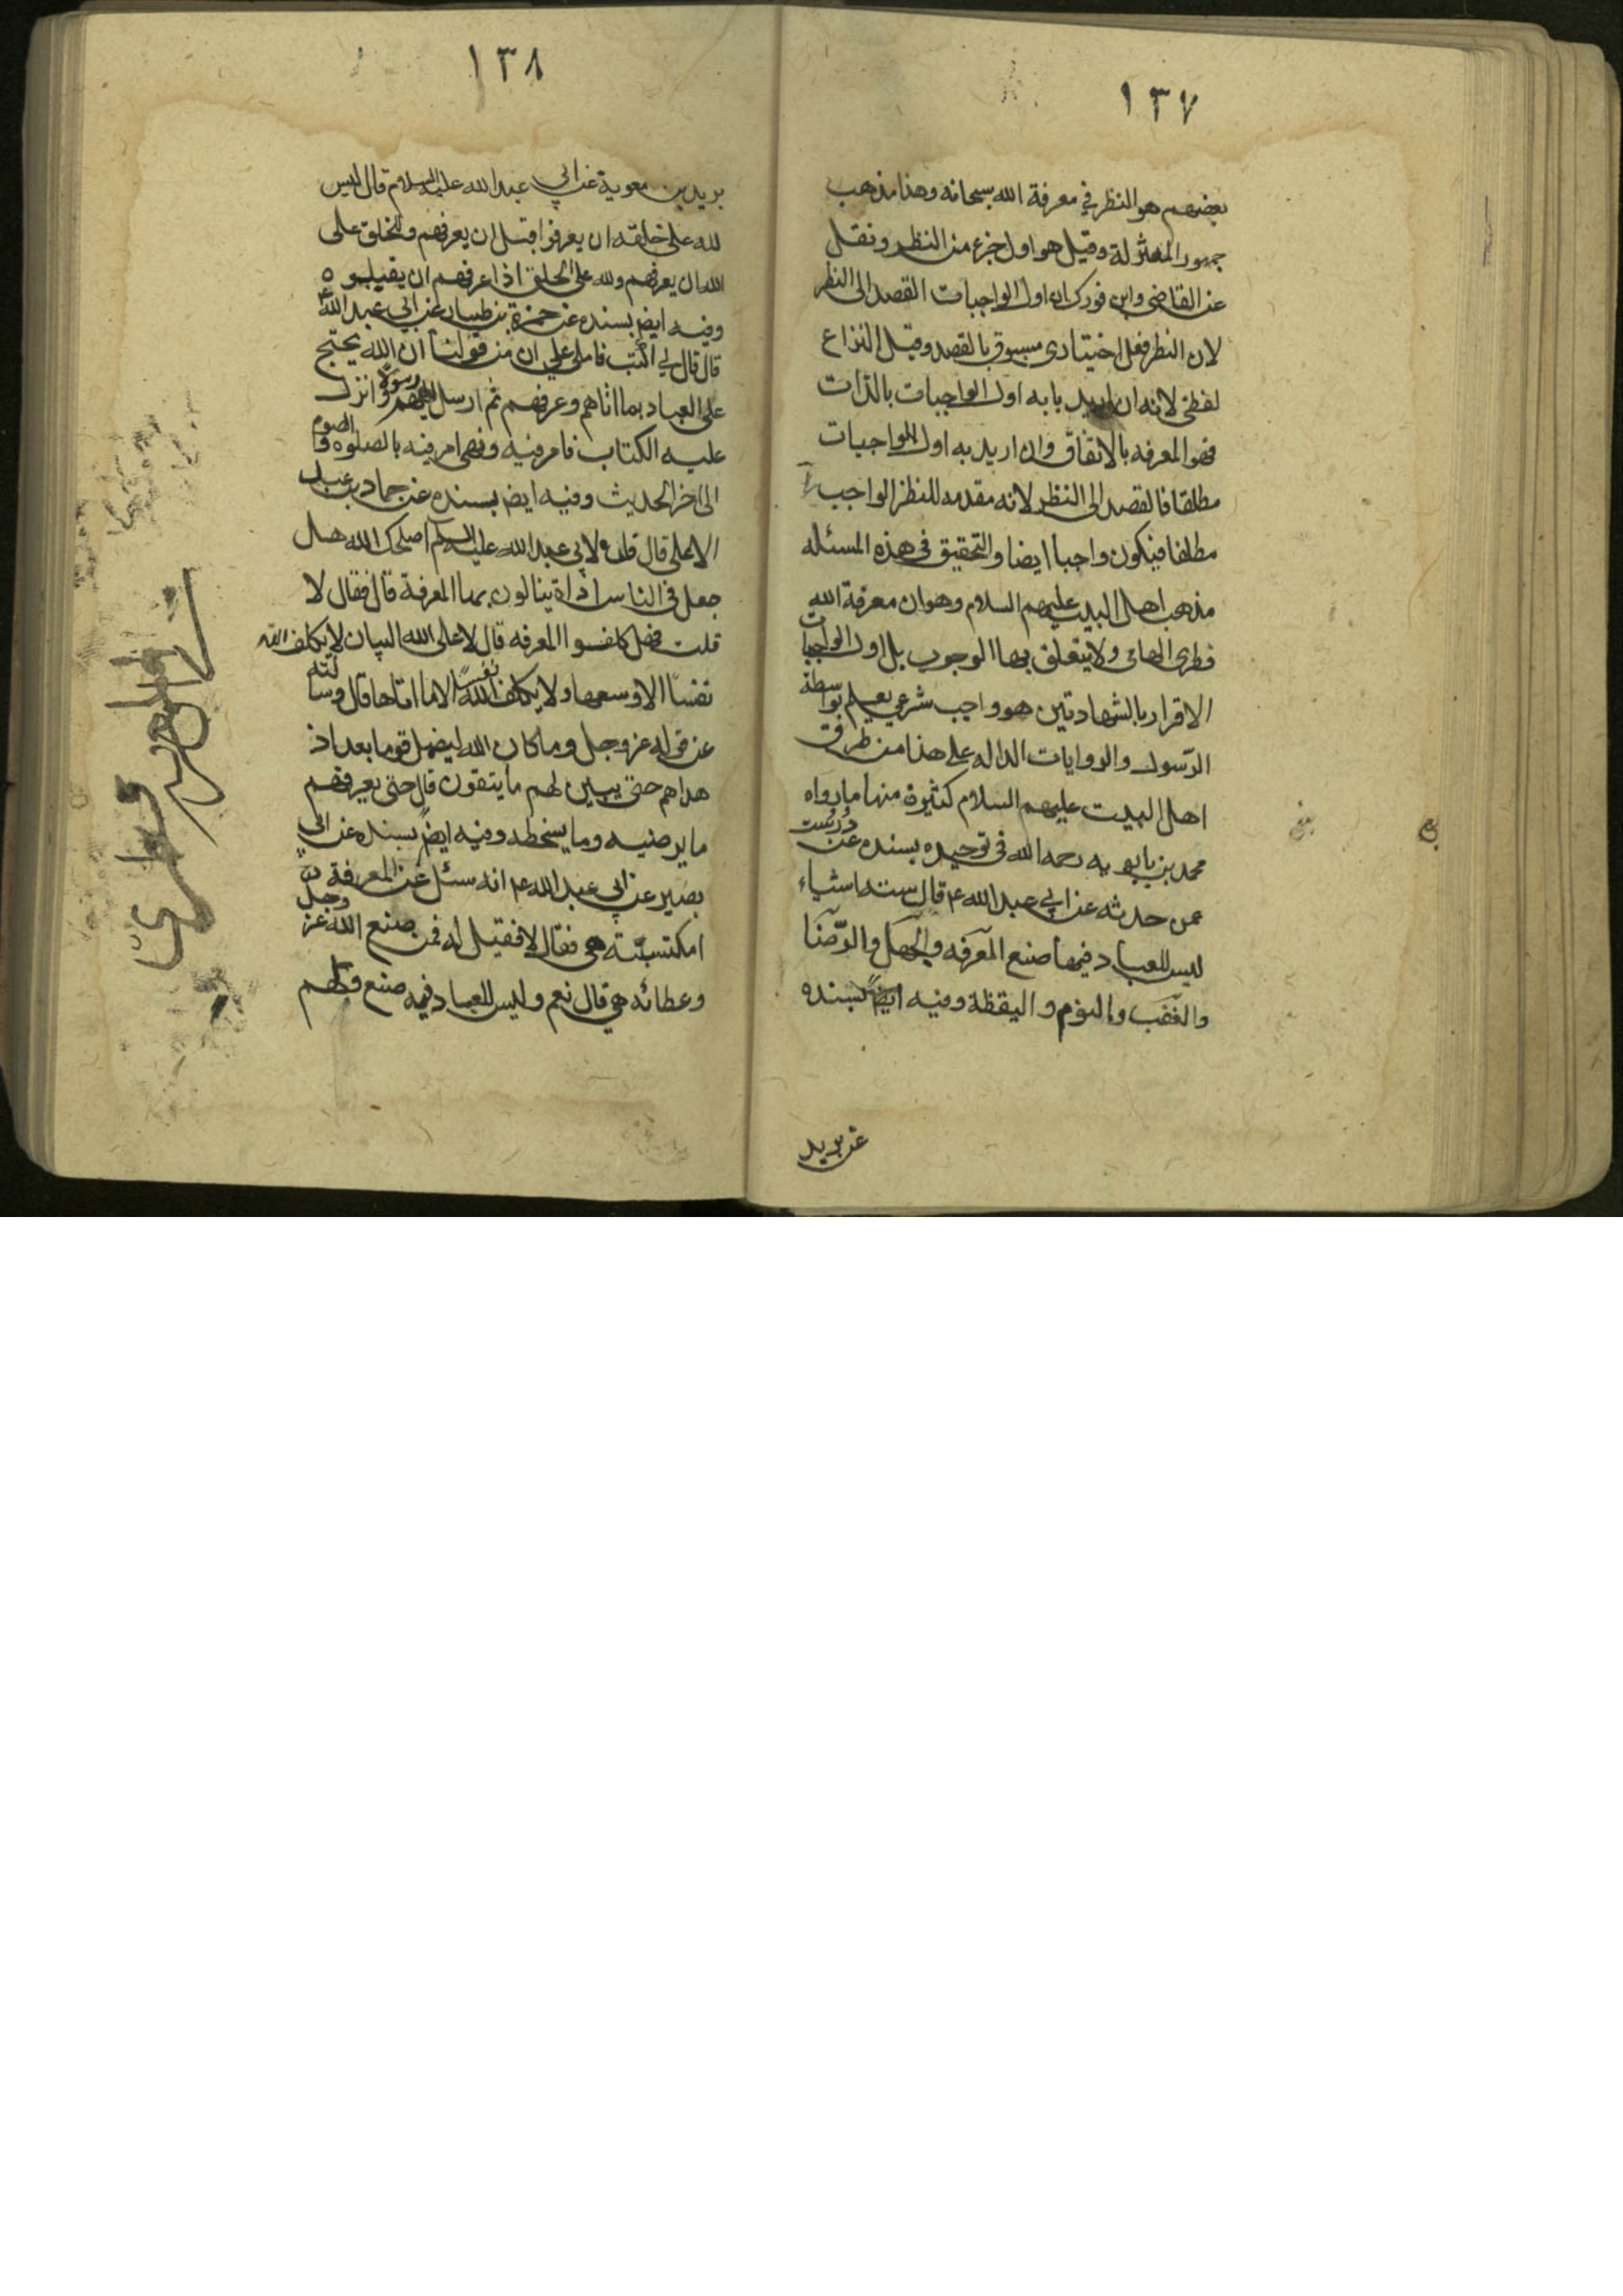 ١٣٧
بعضهم هو النظر في معرفة الله سبحانه وهذا مذهب
جمهور المعتزلة وقيل هو اول جزء من النظر ونقل
عن القاضي وابن فورك ان اول الواجبات القصد الى النظر
لان النظر فعل اختياري مسبوق بالقصد وقيل النزاع
لفظي لانه ان اريد بابه اول الواجبات بالذات
فهو المعرفه بالاتفاق وان اريد به اول الواجبات
مطلقا فالقصد الى النظر لانه مقدمه للنظر الواجب
مطلقا فيكون واجبا ايضا والتحقيق في هذه المسئله
مذهب اهل البيت عليهم السلام وهو ان معرفة الله
فطرى الهائى ولا يتعلق بها الوجوب بل اول الواجبات
الاقرار بالشهادتين هو واجب شرعي يعلم بواسطة
الرّسول والروايات الداله على هذا من طرق
اهل البيت عليهم السلام كثيرة منها ما رواه
محمد بن بابويه رحمه الله في توحيده بسنده عن دُرُست
عمن حدثه عن ابي عبد الله ع قال ستة اشياء
ليس للعباد فيها صنع المعرفه والجهل والرّضا
والغضب والنوم واليقظة وفيه ايضً بسنده
عن بريد
١٣٨
بريد بن معوية عن ابي عبد الله عليه السلام قال ليس
لله على خلقه ان يعرفوا قبل ان يعرفهم وللخلق على
الله ان يعرفهم ولله على الخلق اذا عرفهم ان يقبلوه
وفيه ايض بسنده عن حمزة بن طيار عن ابي عبد الله ع
قال قال لي اكتب فاملى علي ان من قولنا ان الله يحتج
على العباد بما اتاهم وعرفهم ثم ارسل اليهم رسولا وانزل
عليه الكتاب فامر فيه ونهى امر فيه بالصلوه والصوم
الى آخر الحديث وفيه ايض بسنده عن حماد بن عبد
الاعلى قال قلت لابي عبد الله عليه السلم اصلحك الله هل
جعل في الناس اداة ينالون بها المعرفة قال فقال لا
قلت فهل كلفوا المعرفه قال لا على الله البيان لا يكلف الله
نفسًا الا وسعها ولا يكلف الله نفسًا الا ما اتاها قال وسالته
عن قوله عز وجل وما كان الله ليضل قوما بعد اذ
هداهم حتى يبين لهم ما يتقون قال حتى يعرفهم
ما يرضيه وما يسخطه وفيه ايضً بسنده عن ابي
بصير عن ابي عبد الله ع انه سئل عن المعرفة
امكتسبة هي فقال لا فقيل له فمن صنع الله عز وجل
وعطائه هي قال نعم وليس للعباد فيه صنع ولهم